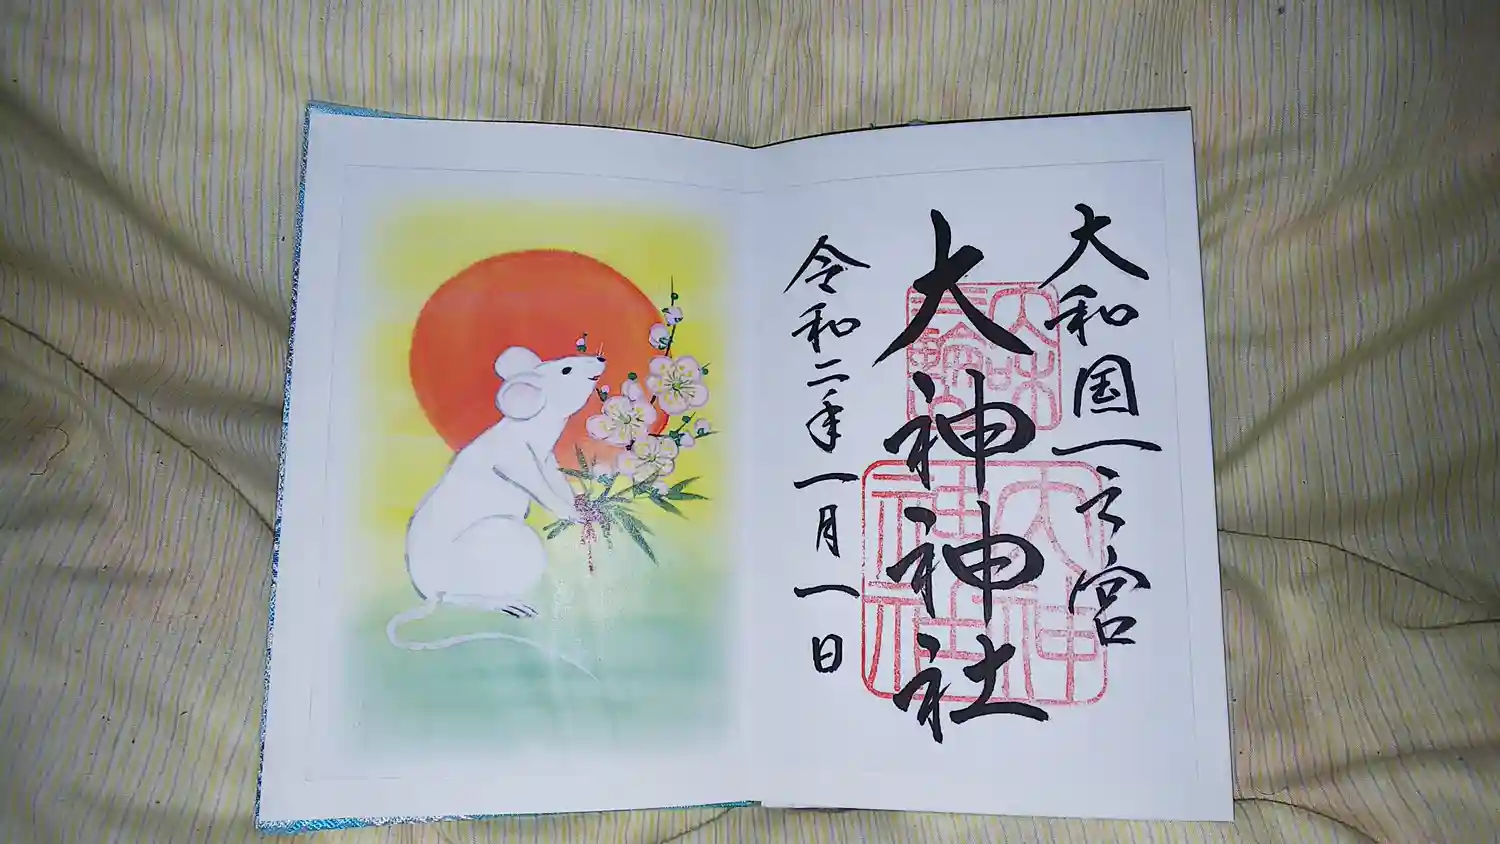 大和国一之宮
大神神社
令和二年一月一日
大神
神社